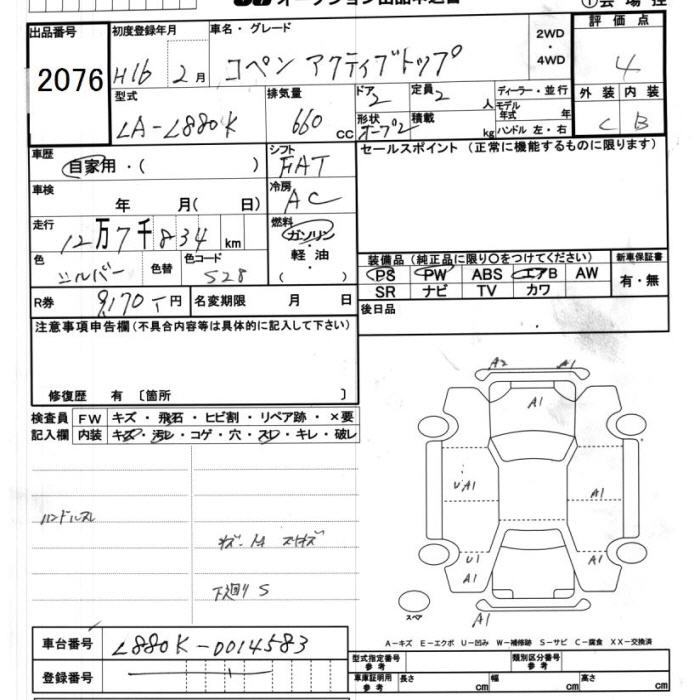 オークション出品申込書
①会場控
出品番号
2076
初度登録年月
H16 2月
車名・グレード
コペン アクティブトップ
2WD
・
4WD
評価点
4
外装 内装
C B
型式
LA-L880K
排気量
660 cc
ドア
2
定員
2 人
形状
オープン
積載
kg
ディーラー・並行
モデル年式 年
ハンドル 左・右
車歴
自家用・( )
シフト
FAT
セールスポイント (正常に機能するものに限ります)
車検
年 月( 日)
冷房
AC
走行
12万7千834 km
燃料
ガソリン
・
軽・油
( )
色
シルバー
色替
色コード
S28
R券
9,170 円
名変期限 月 日
装備品(純正品に限り○をつけてください)
PS PW ABS エアB AW
SR ナビ TV カワ
新車保証書
有・無
後日品
注意事項申告欄(不具合内容等は具体的に記入して下さい)
修復歴 有〔箇所 〕
検査員
記入欄
FW キズ・飛石・ヒビ割・リペア跡・×要
内装 キズ・汚レ・コゲ・穴・スレ・キレ・破レ
ハンドルスレ
下廻り S
A2 A1
A1
U A1
A1
U1
A1
A1
A1
スペア
A-キズ E-エクボ U-凹み W-補修跡 S-サビ C-腐食 XX-交換済
車台番号
L880K-0014583
登録番号
型式指定番号
参考
類別区分番号
参考
車庫証明用
参考
長さ cm
幅 cm
高さ cm